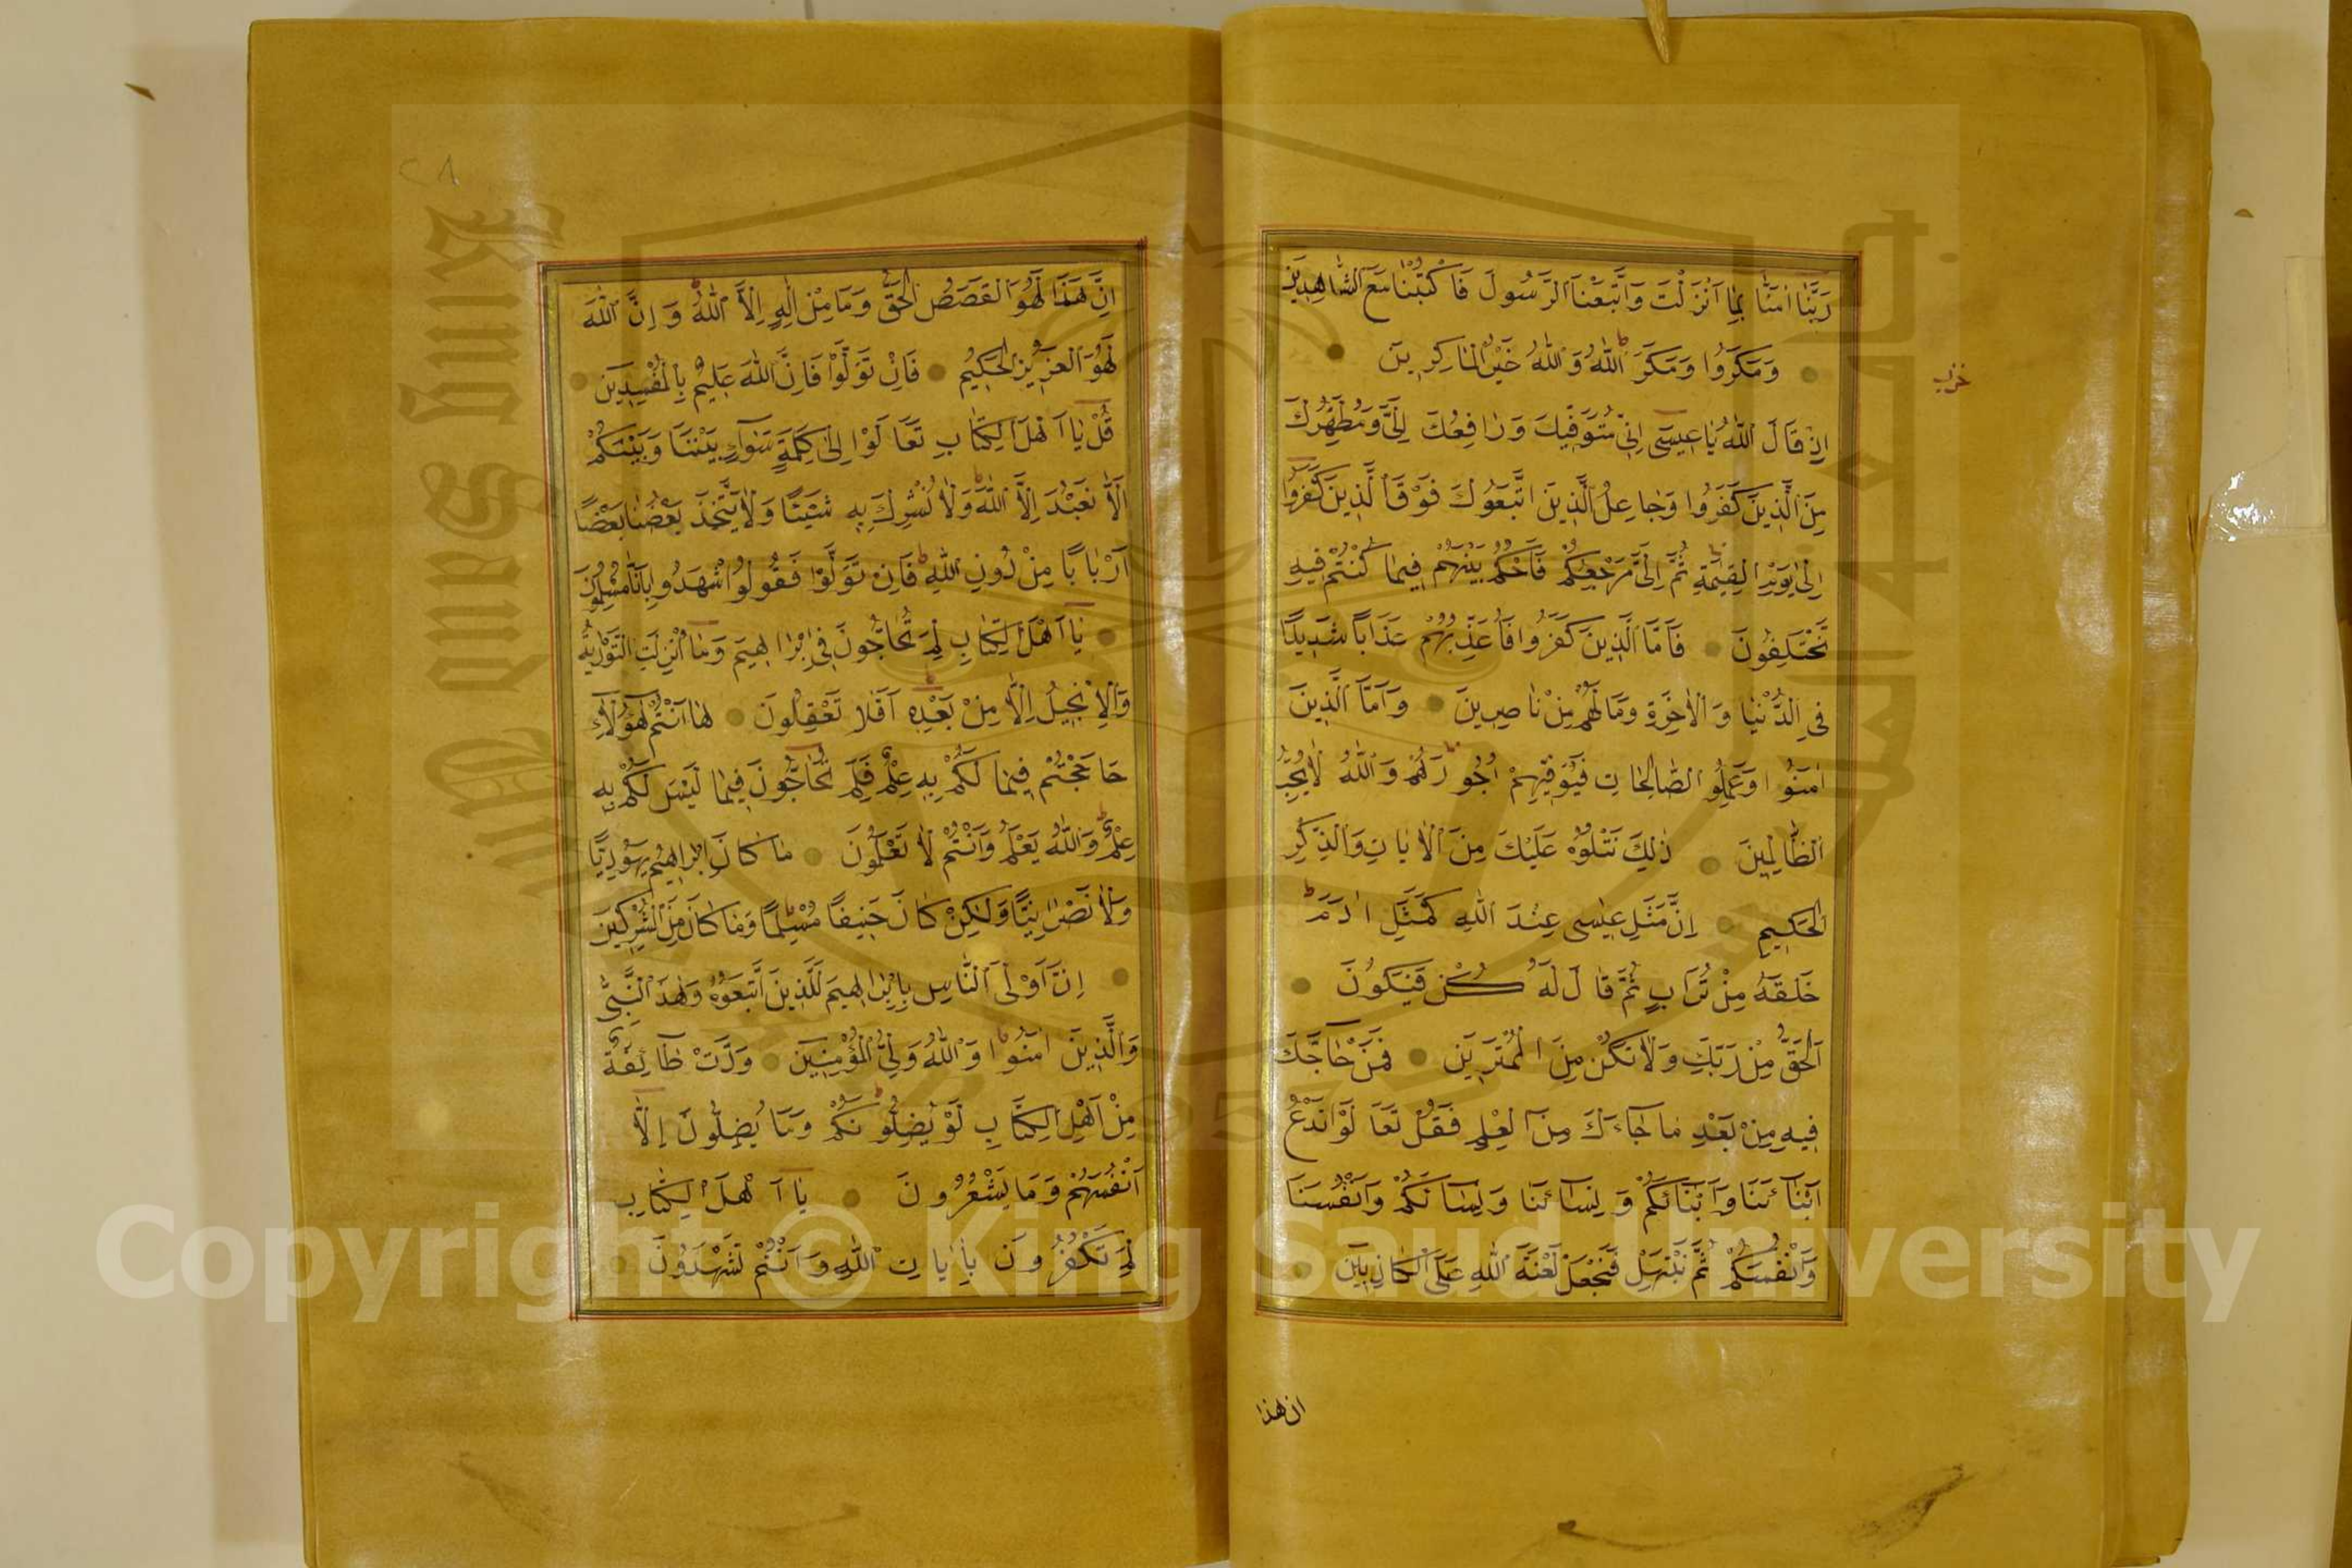 رَبَّنَا اٰمَنَّا بِمَا اَنْزَلْتَ وَاتَّبَعْنَا الرَّسُولَ فَاكْتُبْنَا مَعَ الشَّاهِدِينَ
وَمَكَرُوا وَمَكَرَ اللّٰهُ وَاللّٰهُ خَيْرُ الْمَاكِرِينَ
اِذْ قَالَ اللّٰهُ يَا عِيسٰى اِنِّى مُتَوَفِّيكَ وَرَافِعُكَ اِلَىَّ وَمُطَهِّرُكَ
مِنَ الَّذِينَ كَفَرُوا وَجَاعِلُ الَّذِينَ اتَّبَعُوكَ فَوْقَ الَّذِينَ كَفَرُوا
اِلٰى يَوْمِ الْقِيٰمَةِ ثُمَّ اِلَىَّ مَرْجِعُكُمْ فَاَحْكُمُ بَيْنَهُمْ فِيمَا كُنْتُمْ فِيهِ
تَخْتَلِفُونَ فَاَمَّا الَّذِينَ كَفَرُوا فَاُعَذِّبُهُمْ عَذَابًا شَدِيدًا
فِى الدُّنْيَا وَالْاٰخِرَةِ وَمَا لَهُمْ مِنْ نَاصِرِينَ وَاَمَّا الَّذِينَ
اٰمَنُوا وَعَمِلُوا الصَّالِحَاتِ فَيُوَفِّيهِمْ اُجُورَهُمْ وَاللّٰهُ لَا يُحِبُّ
الظَّالِمِينَ ذٰلِكَ نَتْلُوهُ عَلَيْكَ مِنَ الْاٰيَاتِ وَالذِّكْرِ
الْحَكِيمِ اِنَّ مَثَلَ عِيسٰى عِنْدَ اللّٰهِ كَمَثَلِ اٰدَمَ
خَلَقَهُ مِنْ تُرَابٍ ثُمَّ قَالَ لَهُ كُنْ فَيَكُونُ
اَلْحَقُّ مِنْ رَبِّكَ وَلَا تَكُنْ مِنَ الْمُمْتَرِينَ فَمَنْ حَاجَّكَ
فِيهِ مِنْ بَعْدِ مَا جَاءَكَ مِنَ الْعِلْمِ فَقُلْ تَعَالَوْا نَدْعُ
اَبْنَائَنَا وَاَبْنَائَكُمْ وَنِسَائَنَا وَنِسَائَكُمْ وَاَنْفُسَنَا
وَاَنْفُسَكُمْ ثُمَّ نَبْتَهِلْ فَنَجْعَلْ لَعْنَةَ اللّٰهِ عَلَى الْكَاذِبِينَ
ان هذا
حزب
٢٨
اِنَّ هٰذَا لَهُوَ الْقَصَصُ الْحَقُّ وَمَا مِنْ اِلٰهٍ اِلَّا اللّٰهُ وَاِنَّ اللّٰهَ
لَهُوَ الْعَزِيزُ الْحَكِيمُ فَاِنْ تَوَلَّوْا فَاِنَّ اللّٰهَ عَلِيمٌ بِالْمُفْسِدِينَ
قُلْ يَا اَهْلَ الْكِتَابِ تَعَالَوْا اِلٰى كَلِمَةٍ سَوَاءٍ بَيْنَنَا وَبَيْنَكُمْ
اَلَّا نَعْبُدَ اِلَّا اللّٰهَ وَلَا نُشْرِكَ بِهِ شَيْئًا وَلَا يَتَّخِذَ بَعْضُنَا بَعْضًا
اَرْبَابًا مِنْ دُونِ اللّٰهِ فَاِنْ تَوَلَّوْا فَقُولُوا اشْهَدُوا بِاَنَّا مُسْلِمُونَ
يَا اَهْلَ الْكِتَابِ لِمَ تُحَاجُّونَ فِى اِبْرَاهِيمَ وَمَا اُنْزِلَتِ التَّوْرٰيةُ
وَالْاِنْجِيلُ اِلَّا مِنْ بَعْدِهِ اَفَلَا تَعْقِلُونَ هَا اَنْتُمْ هٰؤُلَاءِ
حَاجَجْتُمْ فِيمَا لَكُمْ بِهِ عِلْمٌ فَلِمَ تُحَاجُّونَ فِيمَا لَيْسَ لَكُمْ بِهِ
عِلْمٌ وَاللّٰهُ يَعْلَمُ وَاَنْتُمْ لَا تَعْلَمُونَ مَا كَانَ اِبْرَاهِيمُ يَهُودِيًّا
وَلَا نَصْرَانِيًّا وَلٰكِنْ كَانَ حَنِيفًا مُسْلِمًا وَمَا كَانَ مِنَ الْمُشْرِكِينَ
اِنَّ اَوْلَى النَّاسِ بِاِبْرَاهِيمَ لَلَّذِينَ اتَّبَعُوهُ وَهٰذَا النَّبِىُّ
وَالَّذِينَ اٰمَنُوا وَاللّٰهُ وَلِىُّ الْمُؤْمِنِينَ وَدَّتْ طَائِفَةٌ
مِنْ اَهْلِ الْكِتَابِ لَوْ يُضِلُّونَكُمْ وَمَا يُضِلُّونَ اِلَّا
اَنْفُسَهُمْ وَمَا يَشْعُرُونَ يَا اَهْلَ الْكِتَابِ
لِمَ تَكْفُرُونَ بِاٰيَاتِ اللّٰهِ وَاَنْتُمْ تَشْهَدُونَ
Copyright © King Saud University